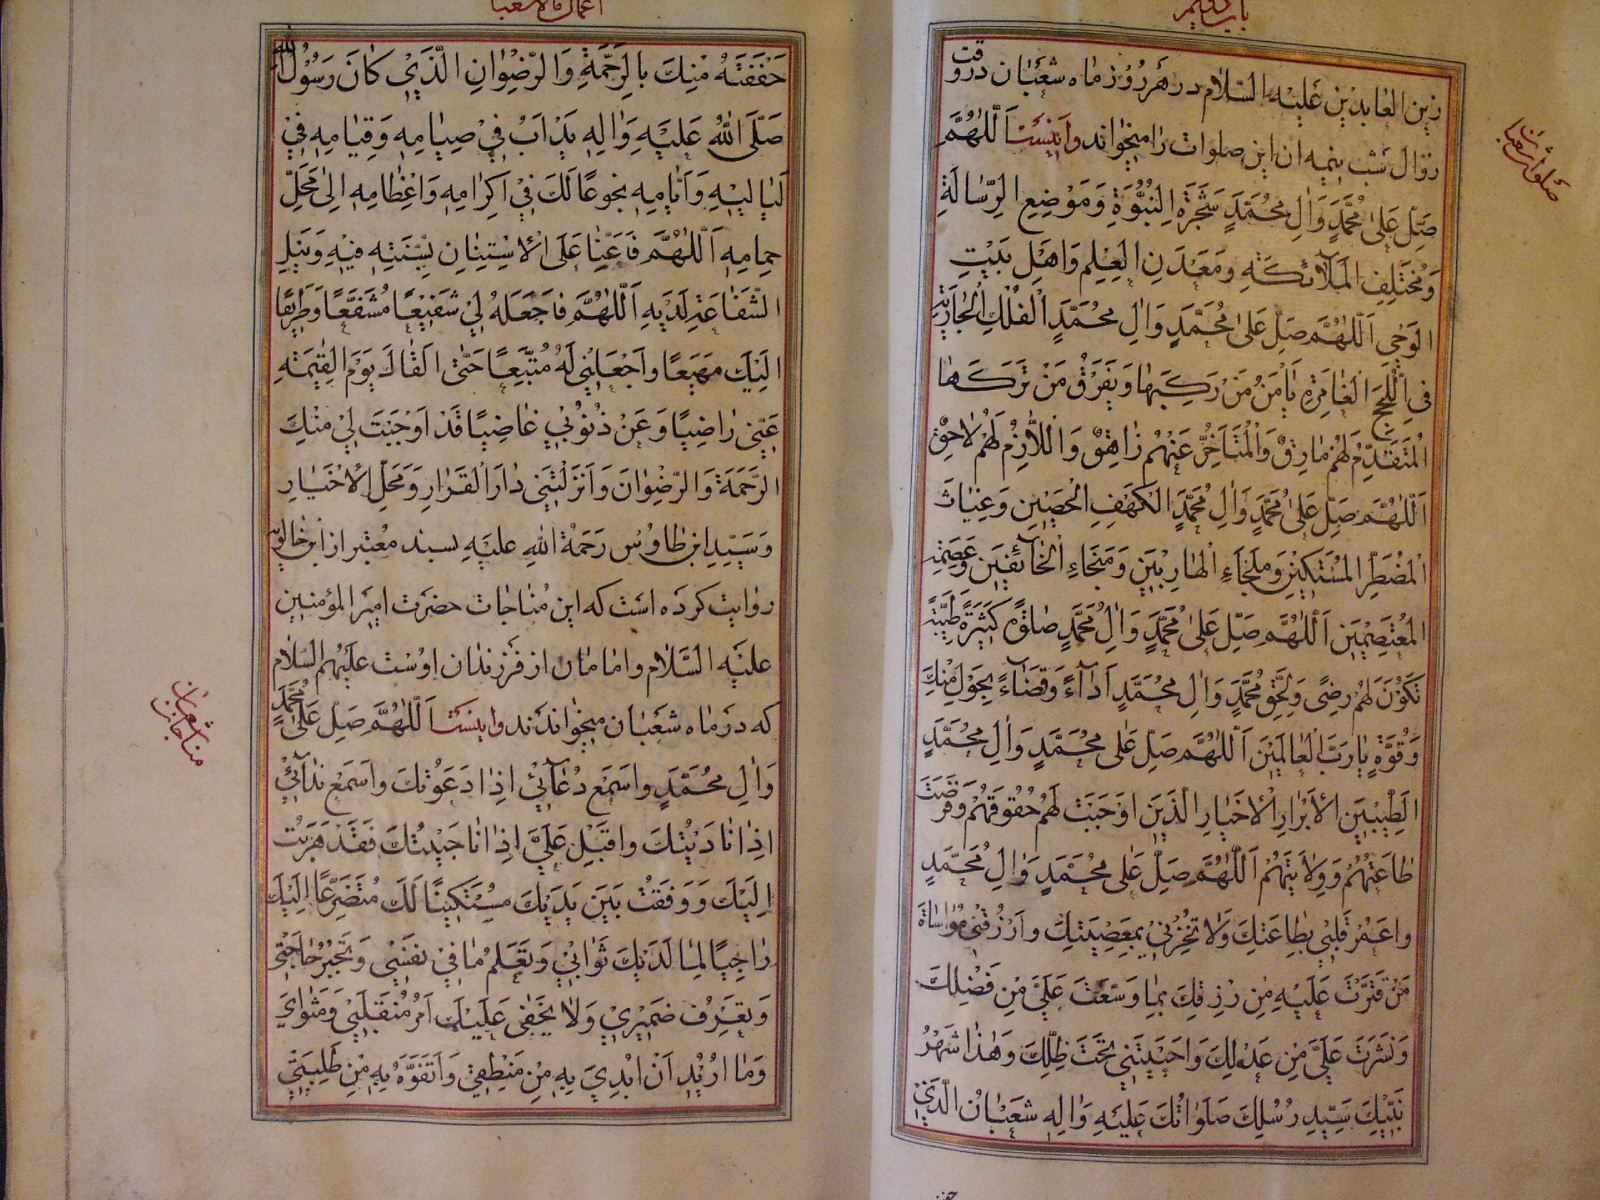 باب پنجم
زین العابدین عَلَیْهِ السَّلام در هر روز ماه شعبان در وقت
زوال و شب نیمه ان این صلوات را میخواند و اینست اَللّٰهُمَّ
صَلِّ عَلیٰ مُحَمَّدٍ وَاٰلِ مُحَمَّدٍ شَجَرَةِ النُّبُوَّةِ وَمَوْضِعِ الرِّسٰالَةِ
وَمُخْتَلَفِ الْمَلآئِكَةِ وَمَعْدَنِ الْعِلْمِ وَاَهْلِ بَيْتِ
الْوَحْىِ اَللّٰهُمَّ صَلِّ عَلىٰ مُحَمَّدٍ وَاٰلِ مُحَمَّدٍ الْفُلْكِ الْجٰارِيَةِ
فِى اللُّجَجِ الْغٰامِرَةِ يَاْمَنُ مَنْ رَكِبَهٰا وَيَغْرَقُ مَنْ تَرَكَهٰا
الْمُتَقَدِّمُ لَهُمْ مٰارِقٌ وَالْمُتَاَخِّرُ عَنْهُمْ زٰاهِقٌ وَاللّٰازِمُ لَهُمْ لاٰحِقٌ
اَللّٰهُمَّ صَلِّ عَلىٰ مُحَمَّدٍ وَاٰلِ مُحَمَّدٍ الْكَهْفِ الْحَصِيْنِ وَغِيٰاثِ
الْمُضْطَرِّ الْمُسْتَكِيْنِ وَمَلْجَاءِ الْهٰارِبِيْنَ وَمَنْجَاءِ الْخٰآئِفِيْنَ وَعِصْمَةِ
الْمُعْتَصِمِيْنَ اَللّٰهُمَّ صَلِّ عَلىٰ مُحَمَّدٍ وَاٰلِ مُحَمَّدٍ صَلٰوةً كَثِيْرَةً طَيِّبَةً
تَكُوْنُ لَهُمْ رِضًى وَلِحَقِّ مُحَمَّدٍ وَاٰلِ مُحَمَّدٍ اَدٰآءً وَقَضٰآءً بِحَوْلٍ مِنْكَ
وَقُوَّةٍ يٰا رَبَّ الْعٰالَمِيْنَ اَللّٰهُمَّ صَلِّ عَلىٰ مُحَمَّدٍ وَاٰلِ مُحَمَّدٍ
الطَّيِّبِيْنَ الْاَبْرٰارِ الْاَخْيٰارِ الَّذِيْنَ اَوْجَبْتَ لَهُمْ حُقُوقَهُمْ وَفَرَضْتَ
طٰاعَتَهُمْ وَوِلاٰيَتَهُمْ اَللّٰهُمَّ صَلِّ عَلىٰ مُحَمَّدٍ وَاٰلِ مُحَمَّدٍ
وَاعْمُرْ قَلْبِيْ بِطٰاعَتِكَ وَلاٰ تُخْزِنِيْ بِمَعْصِيَتِكَ وَارْزُقْنِيْ مُوٰاسٰاةَ
مَنْ قَتَّرْتَ عَلَيْهِ مِنْ رِزْقِكَ بِمٰا وَسَّعْتَ عَلَيَّ مِنْ فَضْلِكَ
وَنَشَرْتَ عَلَيَّ مِنْ عَدْلِكَ وَاَحْيَيْتَنِيْ تَحْتَ ظِلِّكَ وَهٰذٰا شَهْرُ
نَبِيِّكَ سَيِّدِ رُسُلِكَ صَلَوٰاتُكَ عَلَيْهِ وَاٰلِهِ شَعْبٰانُ الَّذِيْ
صلوات شعبان
اعمال ماه شعبان
حَفَفْتَهُ مِنْكَ بِالرَّحْمَةِ وَالرِّضْوٰانِ الَّذِيْ كٰانَ رَسُوْلُ اللّٰهِ
صَلَّى اللّٰهُ عَلَيْهِ وَاٰلِهِ يَدْاَبُ فِيْ صِيٰامِهِ وَقِيٰامِهِ فِيْ
لَيٰالِيْهِ وَاَيّٰامِهِ بُخُوعًا لَكَ فِيْ اِكْرٰامِهِ وَاِعْظٰامِهِ اِلىٰ مَحَلِّ
حِمٰامِهِ اَللّٰهُمَّ فَاَعِنّٰا عَلَى الْاِسْتِنٰانِ بِسُنَّتِهِ فِيْهِ وَنَيْلِ
الشَّفٰاعَةِ لَدَيْهِ اَللّٰهُمَّ فَاجْعَلْهُ لِيْ شَفِيْعًا مُشَفَّعًا وَطَرِيْقًا
اِلَيْكَ مَهْيَعًا وَاجْعَلْنِيْ لَهُ مُتَّبِعًا حَتّٰى اَلْقٰاكَ يَوْمَ الْقِيٰمَةِ
عَنِّيْ رٰاضِيًا وَعَنْ ذُنُوْبِيْ غٰاضِيًا قَدْ اَوْجَبْتَ لِيْ مِنْكَ
الرَّحْمَةَ وَالرِّضْوٰانَ وَاَنْزَلْتَنِيْ دٰارَ الْقَرٰارِ وَمَحَلَّ الْاَخْيٰارِ
وَ سَیِّد ابن طاوُس رَحْمَةُ اللّٰهِ عَلَیْهِ بسند معتبر از ابن خالویه
روایت کرده است که این مُناجات حضرت امیر المؤمنین
علیه السَّلام و امامان از فرزندان اوست علیهم السّلام
که در ماه شعبان میخوانده‌اند و اینست اَللّٰهُمَّ صَلِّ عَلىٰ مُحَمَّدٍ
وَاٰلِ مُحَمَّدٍ وَاسْمَعْ دُعٰآئِيْ اِذٰا دَعَوْتُكَ وَاسْمَعْ نِدٰآئِيْ
اِذٰا نٰادَيْتُكَ وَاَقْبِلْ عَلَيَّ اِذٰا نٰاجَيْتُكَ فَقَدْ هَرَبْتُ
اِلَيْكَ وَوَقَفْتُ بَيْنَ يَدَيْكَ مُسْتَكِيْنًا لَكَ مُتَضَرِّعًا اِلَيْكَ
رٰاجِيًا لِمٰا لَدَيْكَ ثَوٰابِيْ وَتَعْلَمُ مٰا فِيْ نَفْسِيْ وَتَخْبُرُ حٰاجَتِيْ
وَتَعْرِفُ ضَمِيْرِيْ وَلاٰ يَخْفٰى عَلَيْكَ اَمْرُ مُنْقَلَبِيْ وَمَثْوٰايَ
وَمٰا اُرِيْدُ اَنْ اُبْدِئَ بِهِ مِنْ مَنْطِقِيْ وَاَتَفَوَّهُ بِهِ مِنْ طَلِبَتِيْ
مناجات شعبان